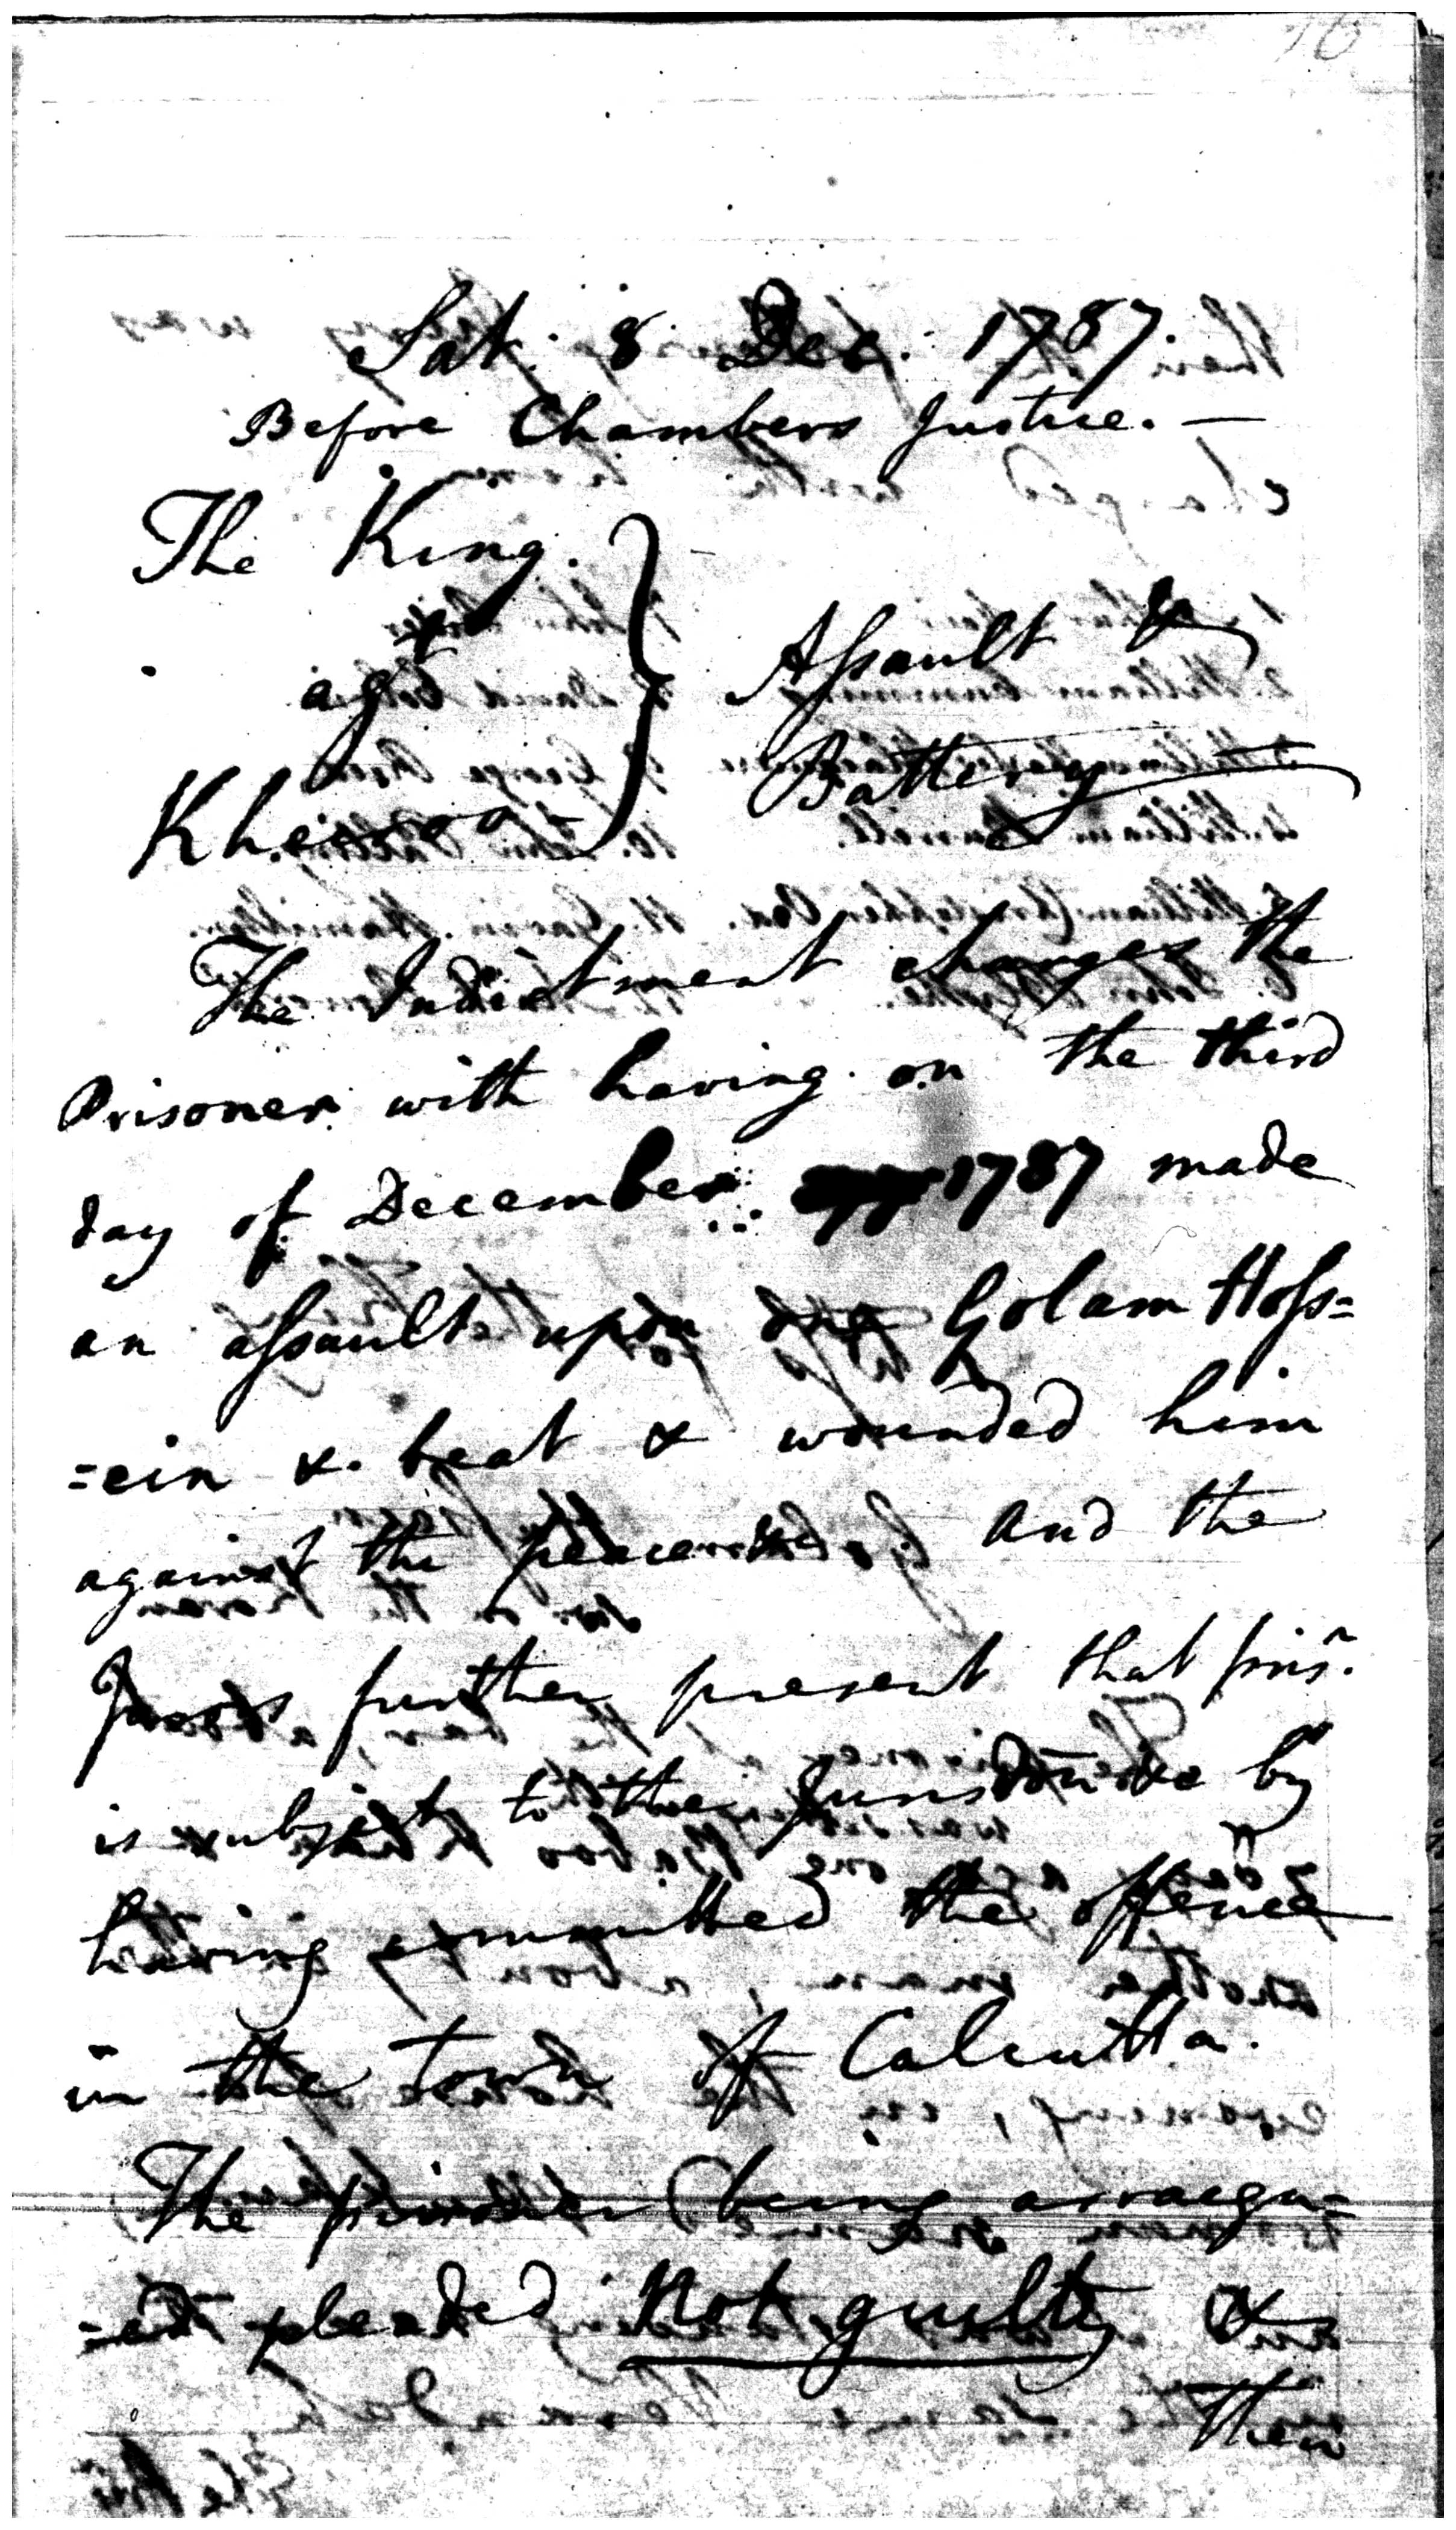 16
Sat. 8 Dec. 1787.
Before Chambers Justice. —
The King.
agt
Assault &
Battery
Kheroo
The Indictment charges the
Prisoner with having on the third
day of December 1787 made
an assault upon one Golam Hoss=
=ein & beat & wounded him
against the peace &c and the
Jurors further present that pris.r
is subject to the Jurisdction &c by
having committed the offence
in the town of Calcutta.
The prisoner being arraign-
=ed pleaded Not guilty &
then